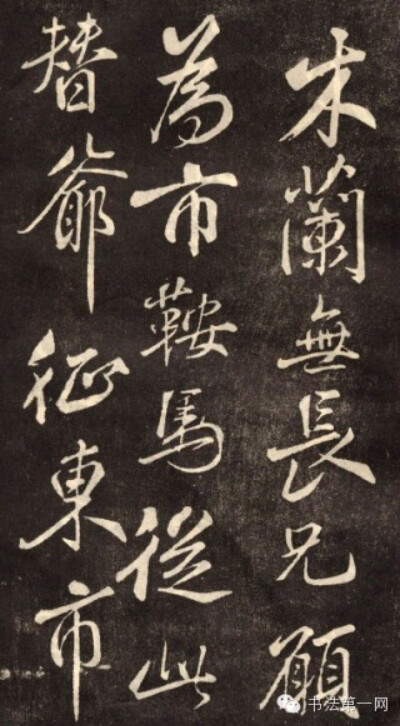 木蘭無長兄願
為市鞍馬從此
替爺征東市
书法第一网